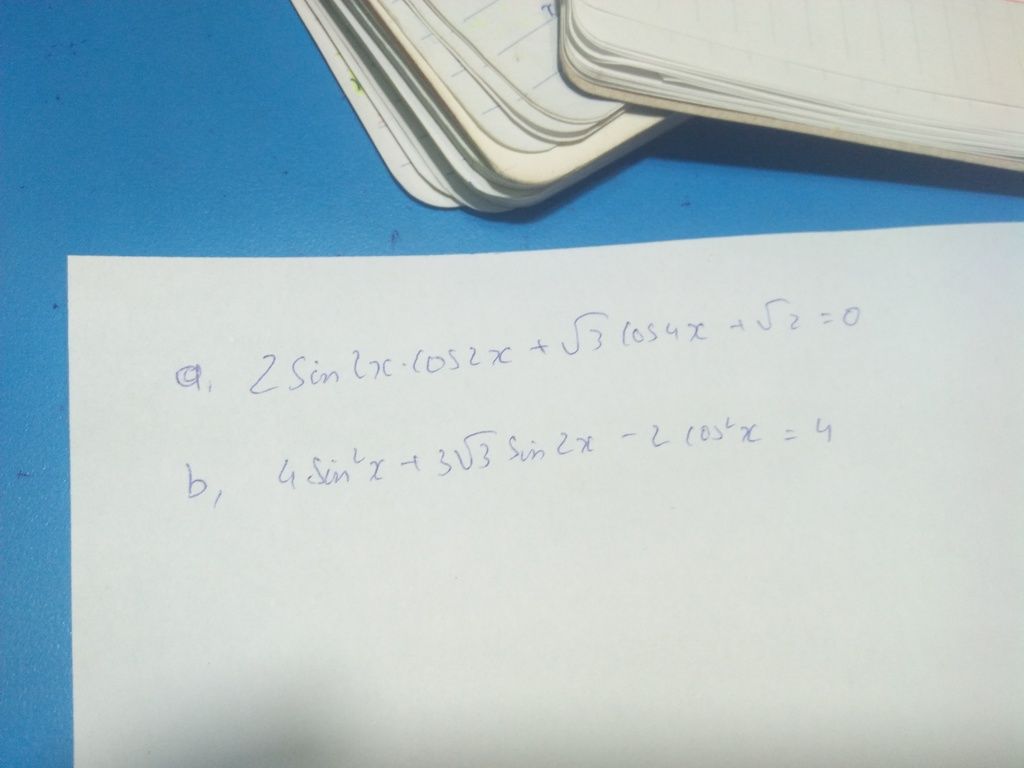 a, 2 sin 2x . cos 2x + √3 cos 4x + √2 = 0
b, 4 sin²x + 3√3 sin 2x - 2 cos²x = 4